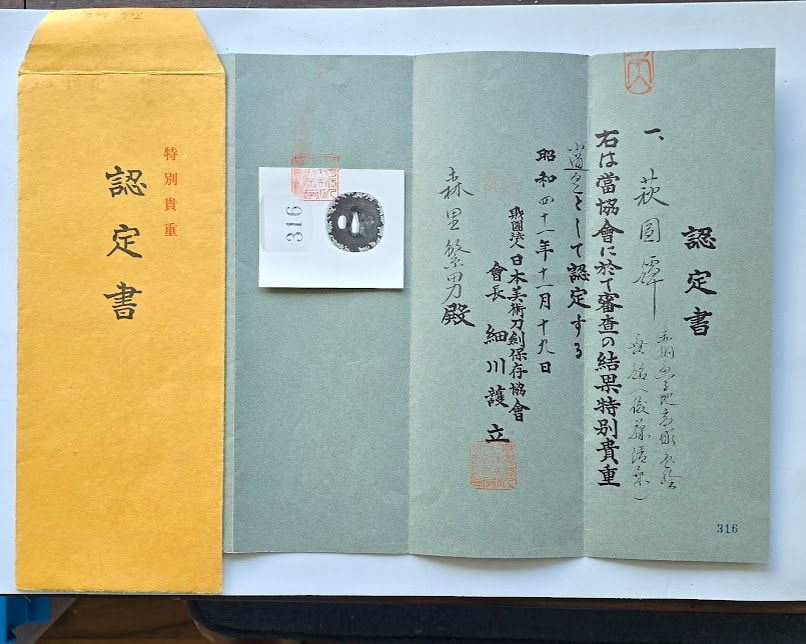 認定書
一、萩圖鐔
赤銅魚子地高彫色絵
無銘(後藤清乗)
右は當協會に於て審査の結果特別貴重
小道具として認定する
昭和四十一年十一月十九日
財團法人日本美術刀劍保存協會
會長 細川護立
森里繁男殿
316
316
特別貴重
認定書